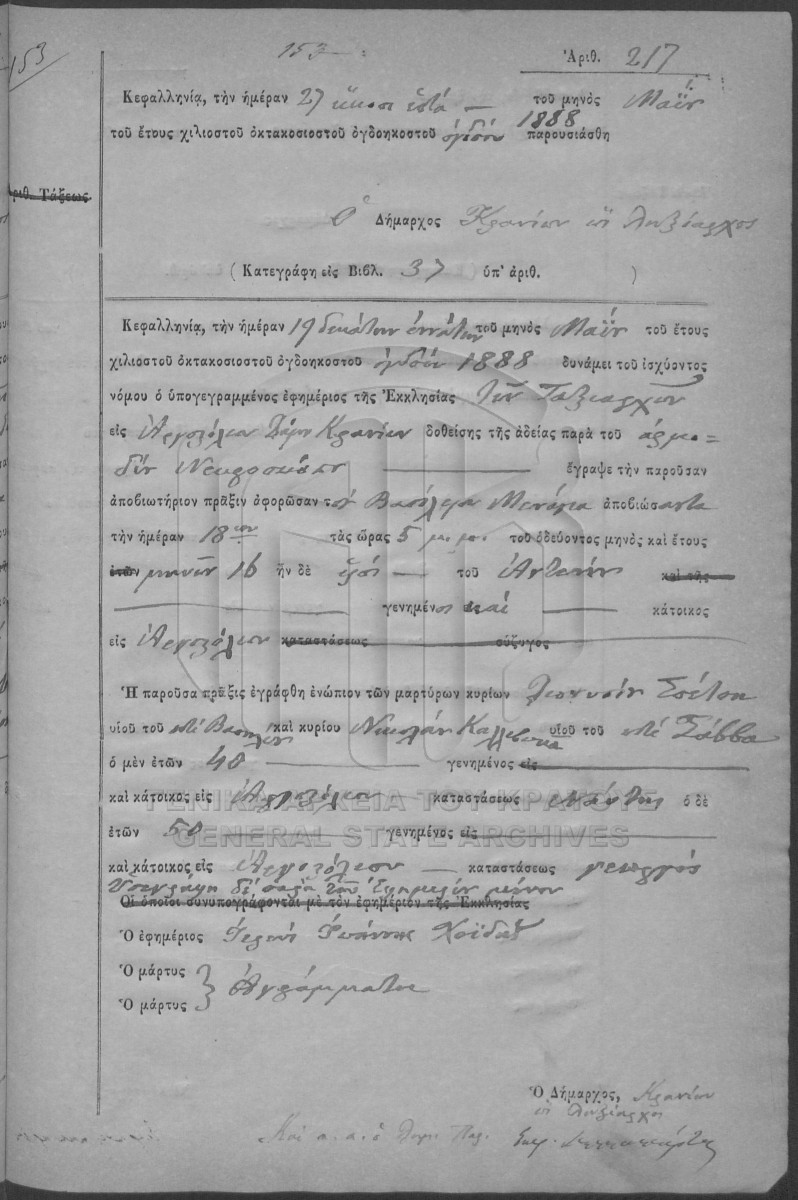 153
153
Ἀριθ. 217
Κεφαλληνίᾳ, τὴν ἡμέραν 27 εἴκοσι ἑπτά — τοῦ μηνὸς Μαΐου
τοῦ ἔτους χιλιοστοῦ ὀκτακοσιοστοῦ ὀγδοηκοστοῦ ὀγδόου 1888 παρουσιάσθη
Ἀριθ. Τάξεως
Ὁ Δήμαρχος Κρανίων ὡς Ληξίαρχος
(Κατεγράφη εἰς Βιβλ. 37 ὑπ' ἀριθ. )
Κεφαλληνίᾳ, τὴν ἡμέραν 19 δεκάτην ἐννάτην τοῦ μηνὸς Μαΐου τοῦ ἔτους
χιλιοστοῦ ὀκτακοσιοστοῦ ὀγδοηκοστοῦ ὀγδόου 1888 δυνάμει τοῦ ἰσχύοντος
νόμου ὁ ὑπογεγραμμένος ἐφημέριος τῆς Ἐκκλησίας τῶν Ταξιαρχῶν
εἰς Ἀργοστόλιον Δήμου Κρανίων δοθείσης τῆς ἀδείας παρὰ τοῦ ἁρμο=
δίου Νεκροσκόπου — ἔγραψε τὴν παροῦσαν
ἀποβιωτήριον πρᾶξιν ἀφορῶσαν τὸν Βασίλειον ἀποβιώσαντα
τὴν ἡμέραν 18 ην τὰς ὥρας 5 μ. μ. τοῦ ὁδεύοντος μηνὸς καὶ ἔτους
ἐτῶν μηνῶν 16 ἦν δὲ υἱός — τοῦ Ἀντωνίου καὶ τῆς
— γενημένος εἰς — καὶ — κάτοικος
εἰς Ἀργοστόλιον καταστάσεως σύζυγος
Ἡ παροῦσα πρᾶξις ἐγράφθη ἐνώπιον τῶν μαρτύρων κυρίων Διονυσίου
υἱοῦ τοῦ ποτὲ Βασιλείου καὶ κυρίου Νικολάου υἱοῦ τοῦ ποτὲ Σάββα
ὁ μὲν ἐτῶν 40 — γενημένος εἰς —
καὶ κάτοικος εἰς Ἀργοστόλιον καταστάσεως ὁ δὲ
ΓΕΝΙΚΑ ΑΡΧΕΙΑ ΤΟΥ ΚΡΑΤΟΥΣ
ἐτῶν 50 — γενημένος εἰς —
GENERAL STATE ARCHIVES
καὶ κάτοικος εἰς Ἀργοστόλιον — καταστάσεως γεωργός
Ὑπεγράφη δὲ παρὰ τοῦ Ἐφημερίου μόνον
Οἱ ὁποῖοι συνυπογράφονται μὲ τὸν ἐφημέριον τῆς Ἐκκλησίας
Ὁ ἐφημέριος Ἱερεὺς Ἰωάννης
Ὁ μάρτυς
Ὁ μάρτυς } Ἀγράμματοι
Ὁ Δήμαρχος, Κρανίων
ὡς Ληξίαρχος